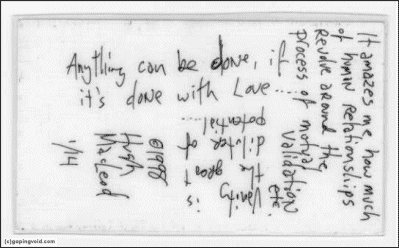 Anything can be done, if
it's done with Love......
It amazes me how much
of human relationships
revolve around the
process of mutual
validation
etc
Vanity is
the great
diluter of
potential....
©1998
Hugh
MacLeod
1/14
(c)gapingvoid.com